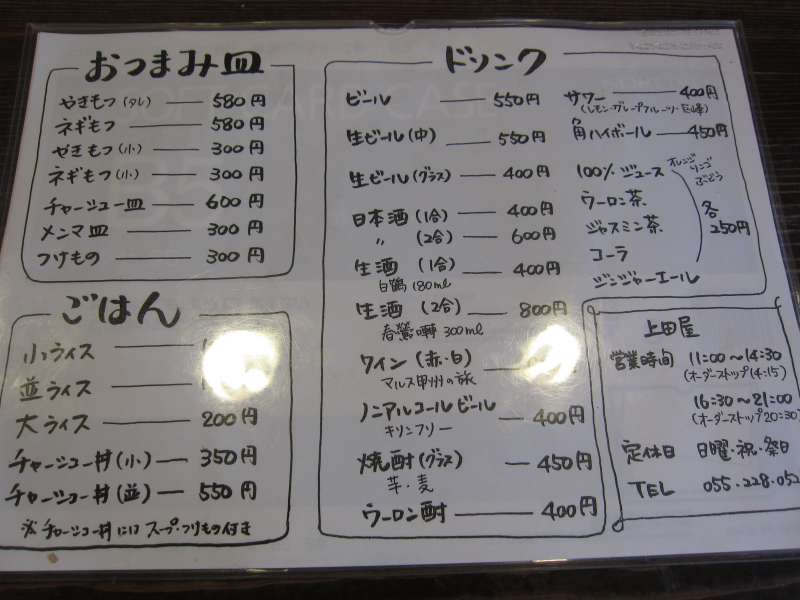 おつまみ皿
やきもつ(タレ) 580円
ネギもつ 580円
やきもつ(小) 300円
ネギもつ(小) 300円
チャーシュー皿 600円
メンマ皿 300円
つけもの 300円
ごはん
小ライス
並ライス
大ライス 200円
チャーシュー丼(小) 350円
チャーシュー丼(並) 550円
※チャーシュー丼には スープ・つけもの付き
ドリンク
ビール 550円
生ビール(中) 550円
生ビール(グラス) 400円
日本酒(1合) 400円
〃 (2合) 600円
生酒 (1合) 400円
白鶴 180ml
生酒 (2合) 800円
春鶯囀 300ml
ワイン(赤・白)
マルス甲州の旅
ノンアルコールビール 400円
キリンフリー
焼酎(グラス) 450円
芋・麦
ウーロン酎 400円
サワー 400円
(レモン・グレープフルーツ・巨峰)
角ハイボール 450円
100%ジュース オレンジ リンゴ ぶどう
ウーロン茶
ジャスミン茶
コーラ
ジンジャーエール
各250円
上田屋
営業時間 11:00〜14:30
(オーダーストップ14:15)
16:30〜21:00
(オーダーストップ20:30)
定休日 日曜・祝・祭日
TEL 055-228-052